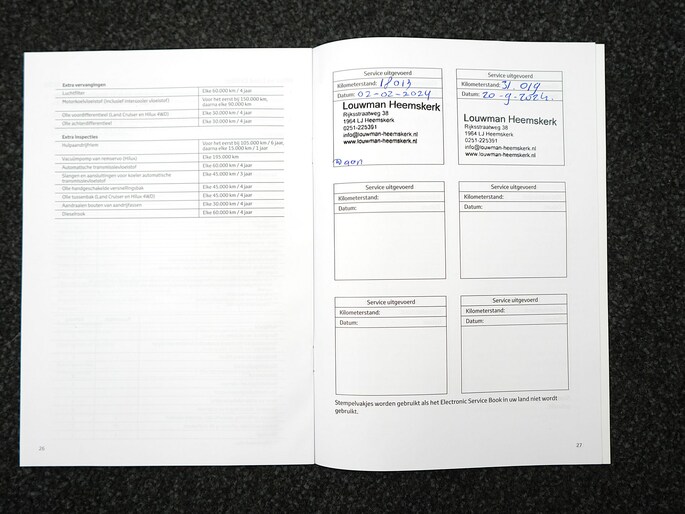 Extra vervangingen
Luchtfilter Elke 60.000 km / 4 jaar
Motorkoelvloeistof (inclusief intercooler vloeistof) Voor het eerst bij 150.000 km,
daarna elke 90.000 km
Olie voordifferentieel (Land Cruiser en Hilux 4WD) Elke 30.000 km / 4 jaar
Olie achterdifferentieel Elke 30.000 km / 4 jaar
Extra inspecties
Hulpaandrijfriem Voor het eerst bij 105.000 km / 6 jaar,
daarna elke 15.000 km / 1 jaar
Vacuümpomp van remservo (Hilux) Elke 195.000 km
Automatische transmissievloeistof Elke 60.000 km / 4 jaar
Slangen en aansluitingen voor koeler automatische
transmissievloeistof Elke 45.000 km / 3 jaar
Olie handgeschakelde versnellingsbak Elke 45.000 km / 4 jaar
Olie tussenbak (Land Cruiser en Hilux 4WD) Elke 45.000 km / 4 jaar
Aandraaien bouten van aandrijfassen Elke 30.000 km / 4 jaar
Dieselrook Elke 60.000 km / 4 jaar
26
Service uitgevoerd
Kilometerstand: 18013
Datum: 02-02-2024
Louwman Heemskerk
Rijksstraatweg 38
1964 LJ Heemskerk
0251-225391
info@louwman-heemskerk.nl
www.louwman-heemskerk.nl
Service uitgevoerd
Kilometerstand: 31.019
Datum: 20-9-2024.
Louwman Heemskerk
Rijksstraatweg 38
1964 LJ Heemskerk
0251-225391
info@louwman-heemskerk.nl
www.louwman-heemskerk.nl
Service uitgevoerd
Kilometerstand:
Datum:
Service uitgevoerd
Kilometerstand:
Datum:
Service uitgevoerd
Kilometerstand:
Datum:
Service uitgevoerd
Kilometerstand:
Datum:
Stempelvakjes worden gebruikt als het Electronic Service Book in uw land niet wordt
gebruikt.
27